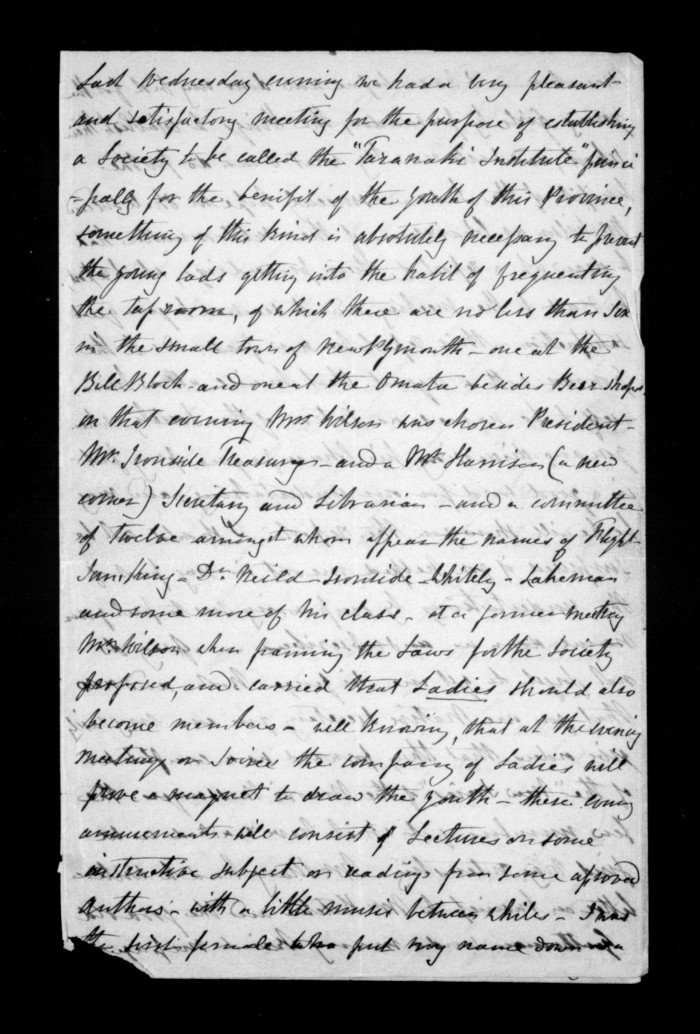 Last Wednesday evening we had a very pleasant
and satisfactory meeting for the purpose of establishing
a Society to be called the "Taranaki Institute" princi
-pally for the benefit of the youth of this Province,
something of this kind is absolutely necessary to prevent
the young lads getting into the habit of frequenting
the tap room, of which there are no less than Six
in the small town of New Plymouth - one at the
Bell Block - and one at the Omata besides Beer shops.
on that evening Mr. Wilson was chosen President -
Mr. Ironside Treasurer - and a Mr. Harrison (a new
comer) Secretary and Librarian - and a committee
of twelve amongst whom appear the names of Flight
Sam King - Dr. Neild - Ironside - Whitely -
and some more of his class - at a former meeting
Mr. Wilson when framing the Laws for the Society
proposed, and carried that Ladies should also
become members - well knowing, that at the evening
meetings or Soirees the company of Ladies will
prove a magnet to draw the youth - these evening
amusements will consist of Lectures on some
instructive subject or readings from some approved
Authors - with a little music between whiles - I was
the first female who put my name down as a